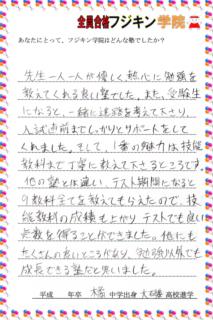 全員合格フジキン学院
あなたにとって、フジキン学院はどんな塾でしたか？
先生一人一人が優しく、熱心に勉強を
教えてくれる良い塾でした。また、受験生
になると、一緒に進路を考えて下さり、
入試直前までしっかりとサポートをして
くれました。そして、1番の魅力は技能
教科まで丁寧に教えて下さるところです。
他の塾とは違い、テスト期間になると
9教科全てを教えてもらえたので、技
能教科の成績も上がりテストでも良い
点数を得ることができました。他にも
たくさんの良いところがあり、勉強以外でも
成長できる塾だと思いました。
平成 年卒 中学出身 高校進学